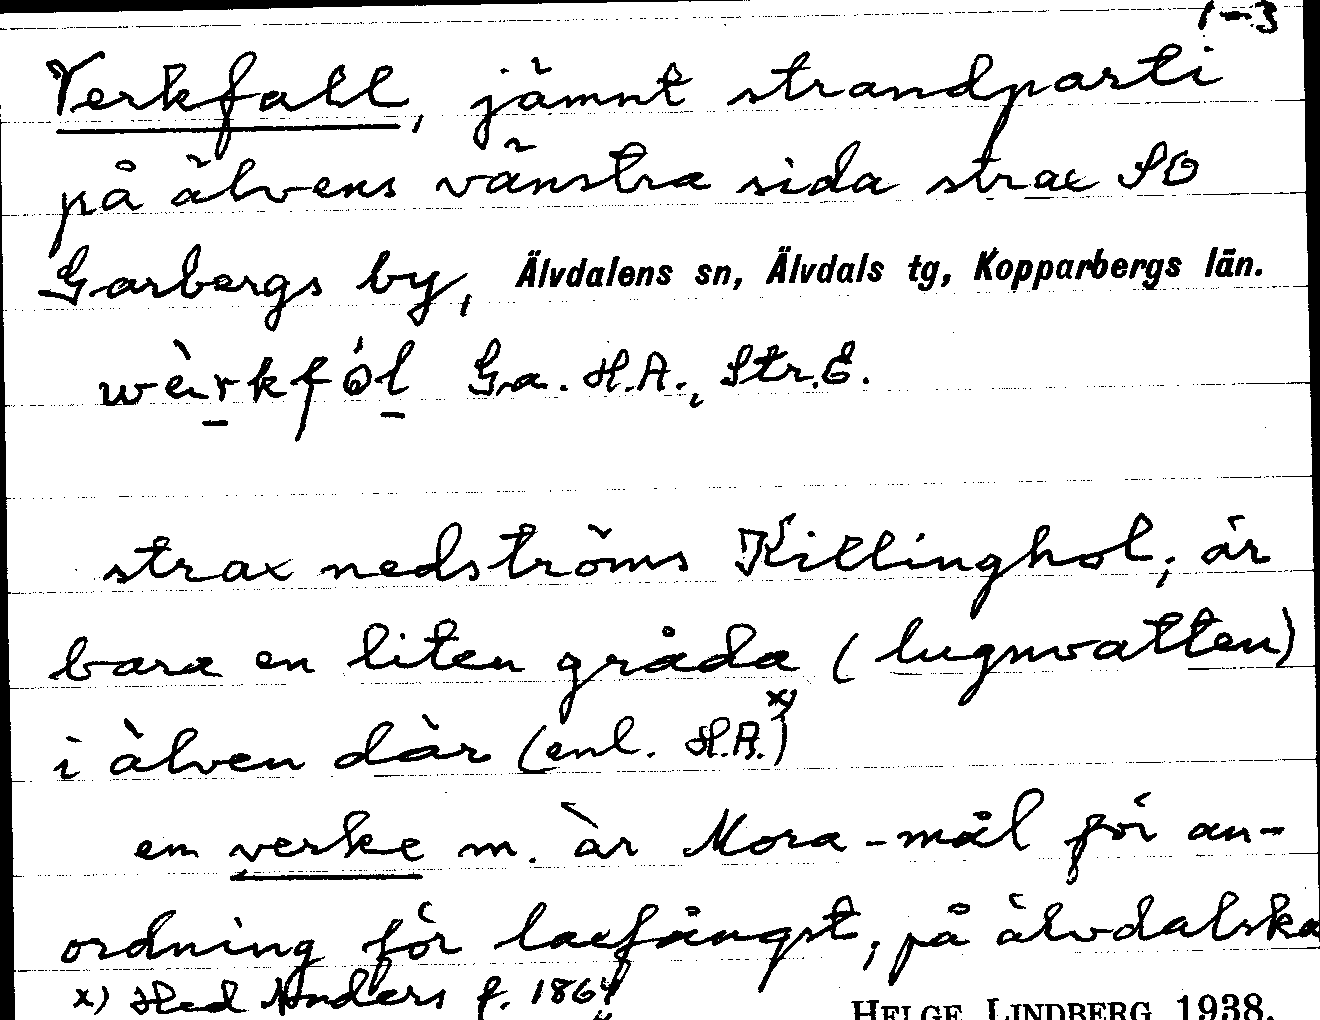 1-3
Verkfall, jämnt strandparti
på älvens vänstra sida strax SO
Garbergs by, Älvdalens sn, Älvdals tg, Kopparbergs län.
wèrkfól Ga. H.A., Str.E.
strax nedströms Killinghol; är
bara en liten gråda (lugnvatten)
i älven där (enl. H.A.)x)
en verke m. är Mora-mål för an-
ordning för laxfångst, på älvdalska
x) Hed Anders f. 1864
HELGE LINDBERG 1938.